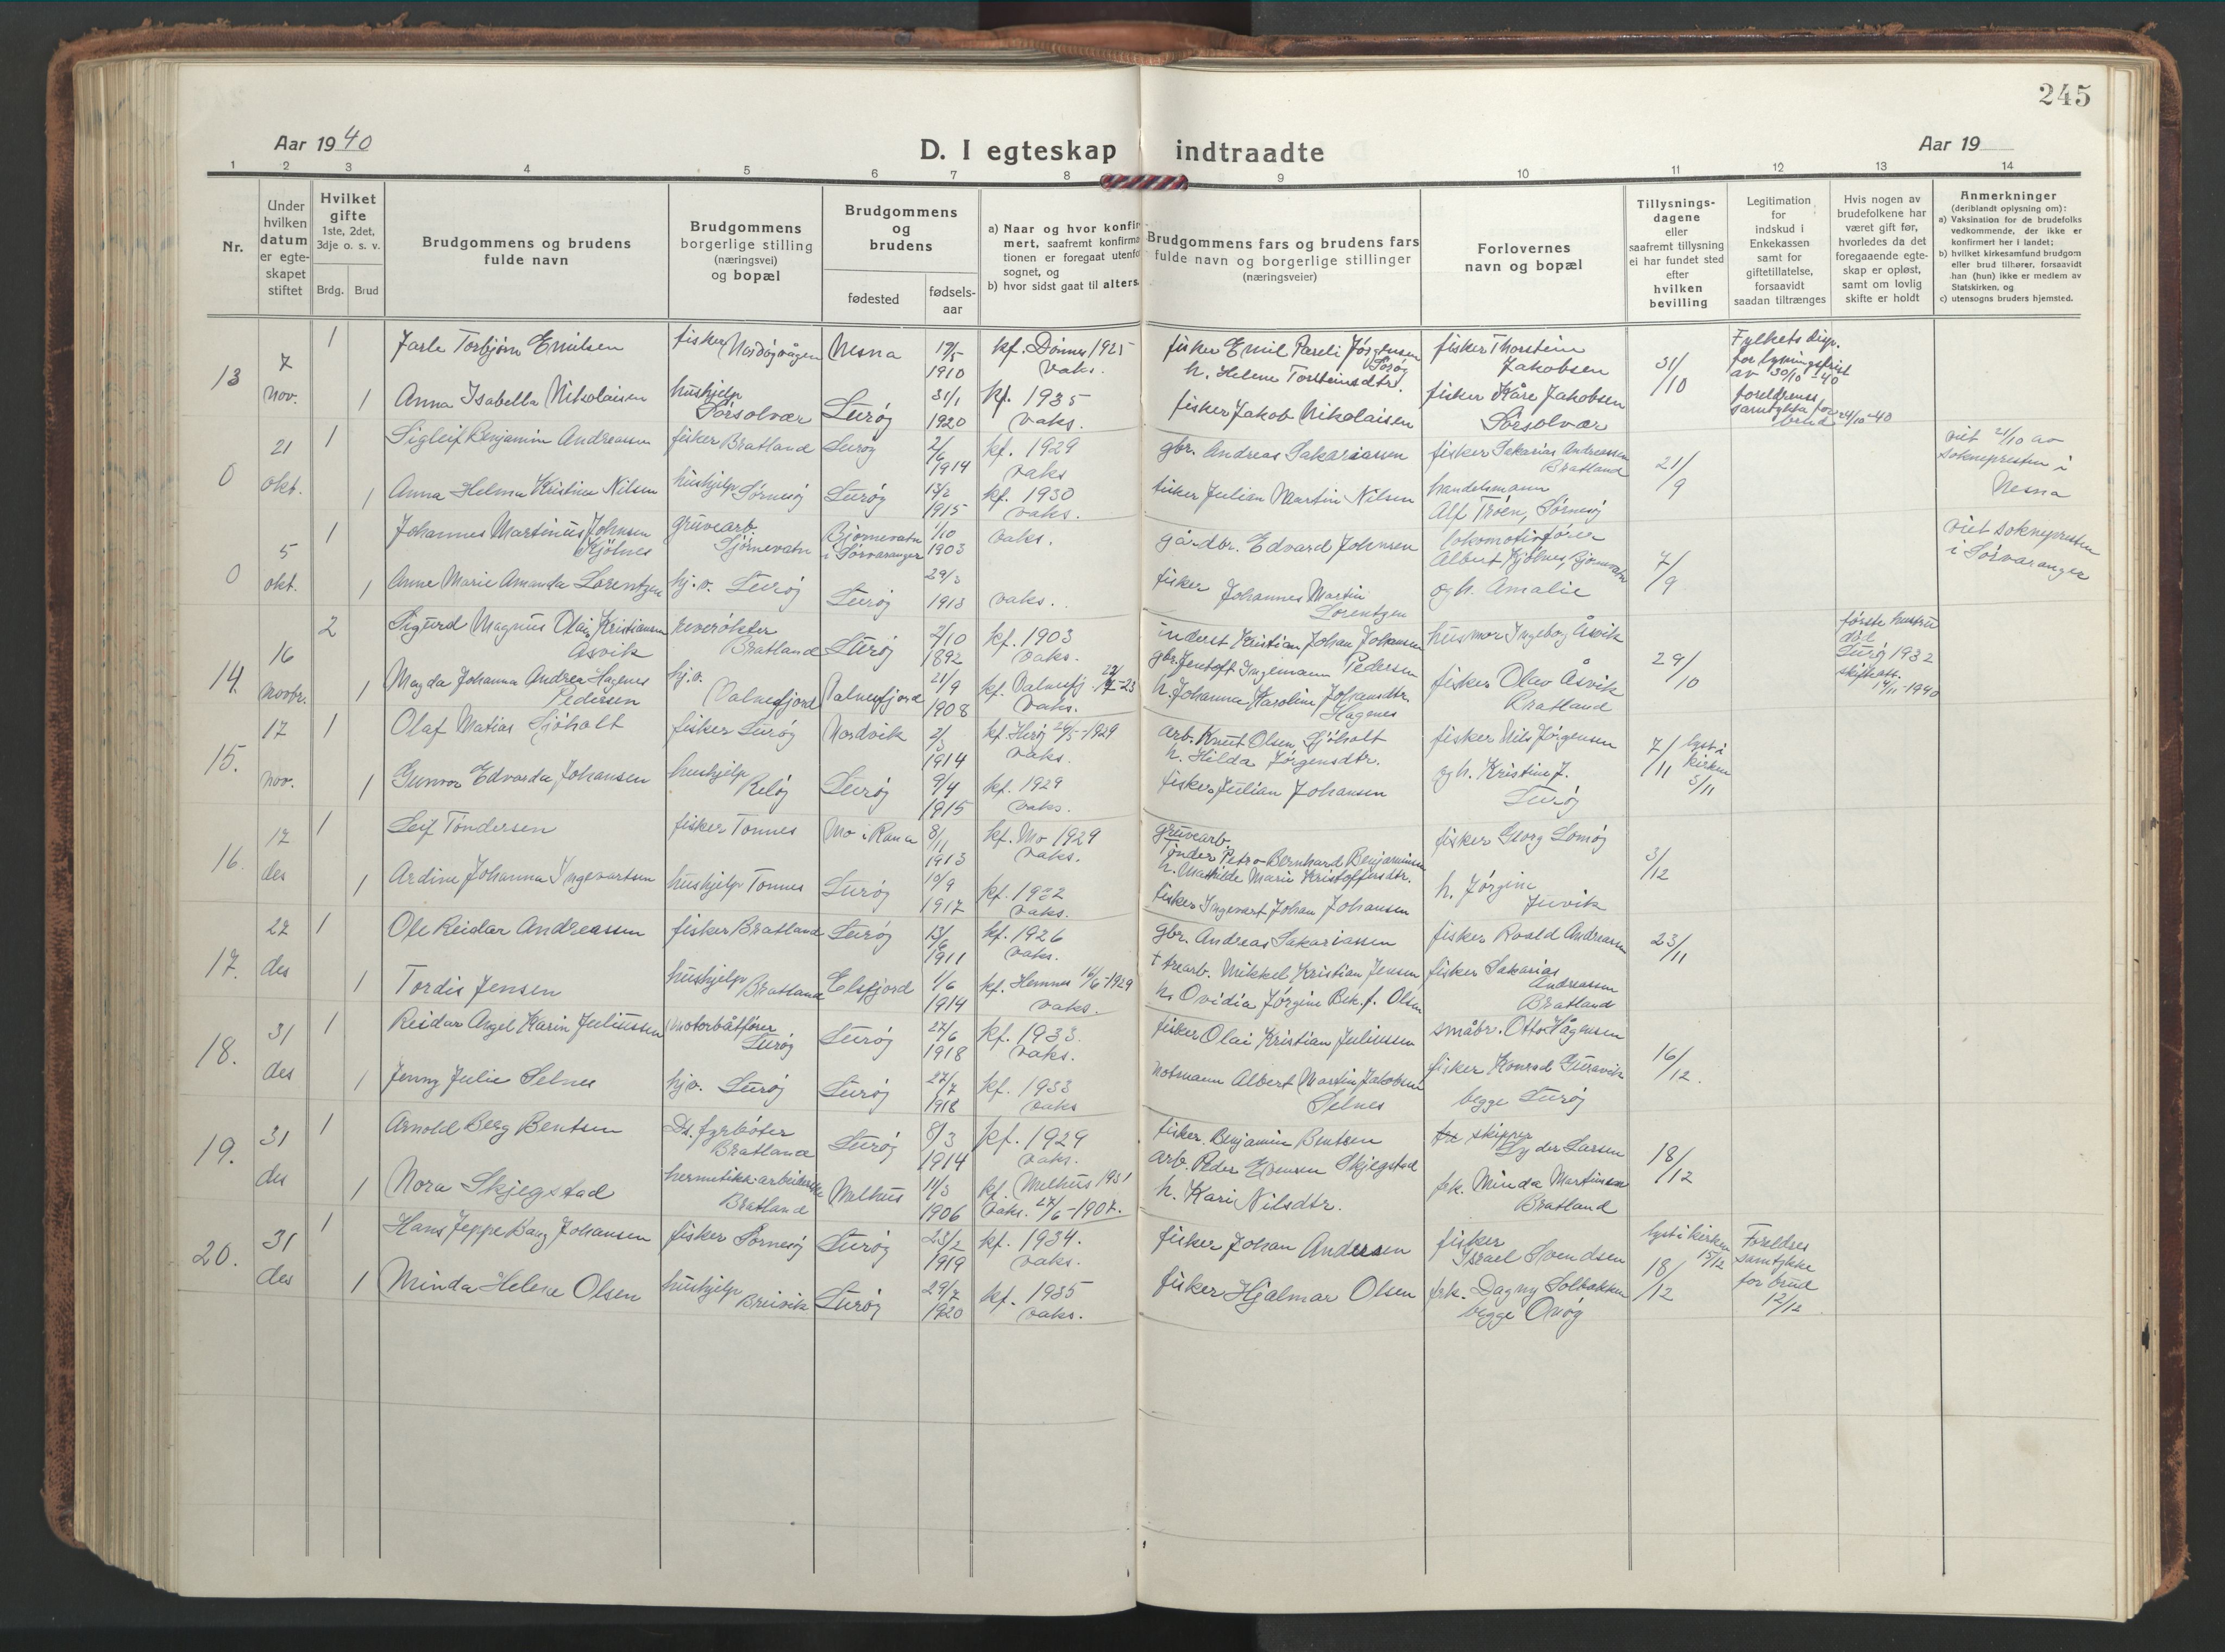 245
Aar 1940
D. I egteskap indtraadte
Aar 19
1 2 3 4 5 6 7 8 9 10 11 12 13 14
Nr.
Under hvilken datum er egte-skapet stiftet
Hvilket gifte 1ste, 2det, 3dje o. s. v.
Brdg. Brud
Brudgommens og brudens fulde navn
Brudgommens borgerlige stilling (næringsvei) og bopæl
Brudgommens og brudens
fødested
fødsels-aar
a) Naar og hvor konfir-mert, saafremt konfirma-tionen er foregaat utenfor sognet, og
b) hvor sidst gaat til alters.
Brudgommens fars og brudens fars fulde navn og borgerlige stillinger (næringsveier)
Forlovernes navn og bopæl
Tillysnings-dagene eller saafremt tillysning ei har fundet sted efter hvilken bevilling
Legitimation for indskud i Enkekassen samt for giftetillatelse, forsaavidt saadan tiltrænges
Hvis nogen av brudefolkene har været gift før, hvorledes da det foregaaende egte-skap er opløst, samt om lovlig skifte er holdt
Anmerkninger
(deriblandt oplysning om):
a) Vaksination for de brudefolks vedkommende, der ikke er konfirmert her i landet;
b) hvilket kirkesamfund brudgom eller brud tilhører, forsaavidt han (hun) ikke er medlem av Statskirken, og
c) utensogns bruders hjemsted.
13 7 nov. 1 Jarle Torbjørn Emilsen fisker Nordøyvågen Nesna 1910 kf. Dønnes 1925 vaks. fisker Emil Pareli Jørgensen h. Helene Torsteinsdtr. fisker Thorstein Jakobsen 31/10 Fylkets disp. for lysningsfrist av 30/10-40
1 Anna Isabella Nikolaisen hushjelp Sørsolvær Lurøy 31/1 1920 kf. 1935 vaks. fisker Jakob Nikolaisen fisker Kåre Jakobsen Sørsolvær foreldrenes samtykke for brud 24/10-40
0 21 okt. 1 Sigleif Benjamin Andreassen fisker Bratland Lurøy 2/6 1914 kf. 1929 vaks gbr. Andreas Sakariassen fisker Sakarias Andreassen Bratland 21/9 viet 21/10 av sokneprest­en i Nesna
1 Anna Helma Kristine Nilsen hushjelp Sørnesøy Lurøy 13/2 1915 kf. 1930 vaks. fisker Julian Martin Nilsen handelsmann Alf Troen, Sørnesøy
0 5 okt. 1 Johannes Martinus Johnsen Kjølnes gruvearb. Bjørnevatn Bjørnevatn i Sørvaranger 1/10 1903 vaks. gårdbr. Edvard Johnsen lokomotivfører Albert Kjølnes, Bjørnevatn 7/9 viet soknepresten i Sørvaranger
1 Anne Marie Amanda Lorentzen hj.v. Lurøy Lurøy 29/3 1913 vaks. fisker Johannes Martin Lorentzen og h. Amalie
14. 16 novbr. 2 Sigurd Magnus Olai Kristiansen Åsvik reverøkter Bratland Lurøy 2/10 1892 kf. 1903 vaks. inderst Kristian Johan Johansen husmor Ingeborg Åsvik 29/10 første hustru død Lurøy 1932 skifteatt. 14/11-1940
1 Magda Johanna Andrea Hagenes Pedersen hj.v. Valnesfjord Valnesfjord 21/9 1908 kf. Valnesfj. vaks. gbr. Jentoft Ingemann Pedersen h. Johanna Karoline Johansdtr. Hagenes fisker Olav Åsvik Bratland
15. 17 nov. 1 Olaf Matias Sjøholt fisker Lurøy Nordvik 1914 kf. Herøy 26/5-1929 vaks. arb. Knut Olsen Sjøholt h. Hilda Jørgensdtr. fisker Nils Jørgensen 7/11 lyst i kirken 3/11
1 Gunvor Edvarda Johansen hushjelp Reløy Lurøy 9/4 1915 kf. 1929 vaks. fisker Julian Johansen og h. Kristine J. Lurøy
16. 17 des 1 Leif Tøndersen fisker Tonnes Mo i Rana 8/1 1913 kf. Mo 1929 vaks. gruvearb. Tønder Petro Bernhard Benjaminsen h. Mathilde Marie Kristoffersdtr. fisker Georg Lomøy 3/12
1 Ardine Johanna Ingevartsen hushjelp Tonnes Lurøy 10/9 1917 kf. 1932 vaks. fisker Ingevart Johan Johansen h. Jørgine Juvik
17. 27 des 1 Ole Reidar Andreassen fisker Bratland Lurøy 13/6 1911 kf. 1926 vaks. gbr. Andreas Sakariassen fisker Roald Andreassen 23/11
1 Tordis Jensen hushjelp Bratland Elsfjord 1/6 1914 kf. Hemnes 16/6-1929 vaks. † trearb. Mikkel Kristian Jensen h. Ovidia Jørgine Bek. f. Olsen fisker Sakarias Andreassen Bratland
18. 31 des 1 Reidar Angel Karin Juliussen Motorbåtfører Lurøy Lurøy 27/6 1918 kf. 1933. vaks. fisker Olai Kristian Juliussen småbr. Otto Vågensen 16/12.
1 Jenny Julie Selnes hj.v. Lurøy Lurøy 27/7 1918 kf. 1933 vaks notmann Albert Martin Jakobsen Selnes fisker Konrad Guravik begge Lurøy
19. 31 des 1 Arnold Berg Bentsen Ds. fyrbøter Bratland Lurøy 8/3 1914 kf. 1929 vaks. fisker Benjamin Bentsen skipper Lyder Larsen 18/12
1 Nora Skjegstad hermetikk-arbeiderske Bratland Melhus 11/3 1906 kf. Melhus 1931 vaks. 27/6-1907. arb. Peder Evensen Skjegstad h. Kari Nilsdtr. frk. Minda Martinsen Bratland
20. 31 des 1 Hans Jeppe Bang Johansen fisker Sørnesøy Lurøy 23/2 1919 kf. 1934. vaks. fisker Johan Andersen fisker Israel Svendsen lyst i kirken 15/12 18/12 Foreldres samtykke for brud 12/12
1 Minda Helene Olsen hushjelp Breivik Lurøy 29/7 1920 kf. 1935 vaks. fisker Hjalmar Olsen frk. Dagny Solbakken begge Onøy